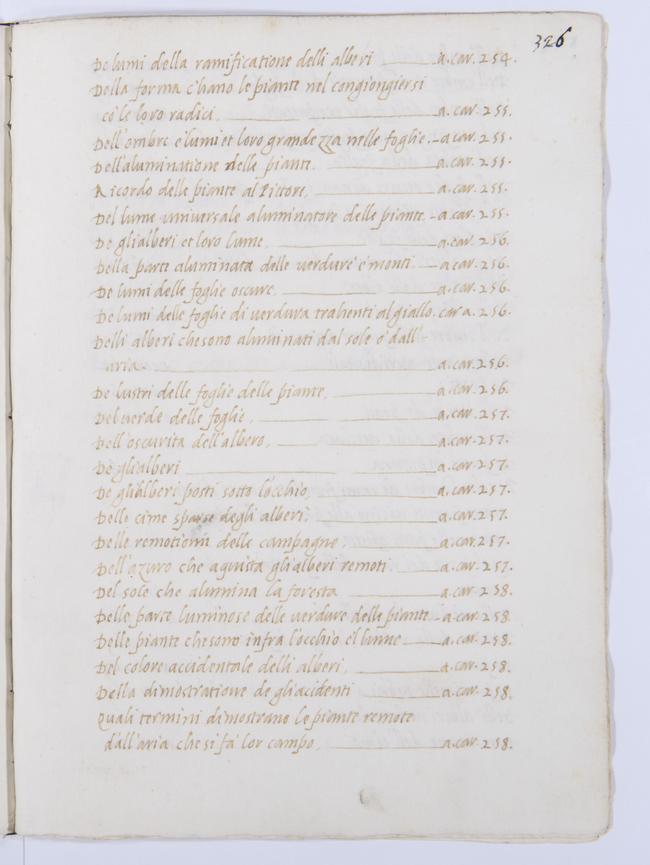 326
De lumi della ramificatione delli alberi a.car. 254.
Della forma c'hano le piante nel congiongiersi
cō le loro radici. a.car. 255.
Dell'ombre e lumi et loro grandezza nelle foglie. a.car. 255.
Dell'aluminatione delle piante. a.car. 255.
Ricordo delle piante al Pittore. a.car. 255.
Del lume universale aluminatore delle piante. a.car. 255.
De gli alberi et loro lume. a.car. 256.
Della parte aluminata delle verdure e' monti. a.car. 256.
De lumi delle foglie oscure. a.car. 256.
De lumi delle foglie di verdura trahenti al giallo. car a. 256.
Delli alberi che sono aluminati dal sole o' dall'
aria. a.car. 256.
De lustri delle foglie delle piante. a.car. 256.
Del verde delle foglie. a.car. 257.
Dell'oscurita dell'albero. a.car. 257.
De gli alberi a.car. 257.
De gli alberi posti sotto l'occhio. a.car. 257.
Delle cime sparse degli alberi. a.car. 257.
Delle remotioni delle campagne a.car. 257.
Dell'azuro che aquista gli alberi remoti a.car. 257.
Del sole che alumina la foresta a.car. 258.
Delle parte luminose delle verdure delle piante a.car. 258.
Delle piante che sono infra l'occhio e'l lume a.car. 258.
Del colore accidentale delli alberi. a.car. 258.
Della dimostratione de gli acidenti a.car. 258.
Quali termini dimostrano le piante remote
dall'aria che si fa lor campo. a.car. 258.